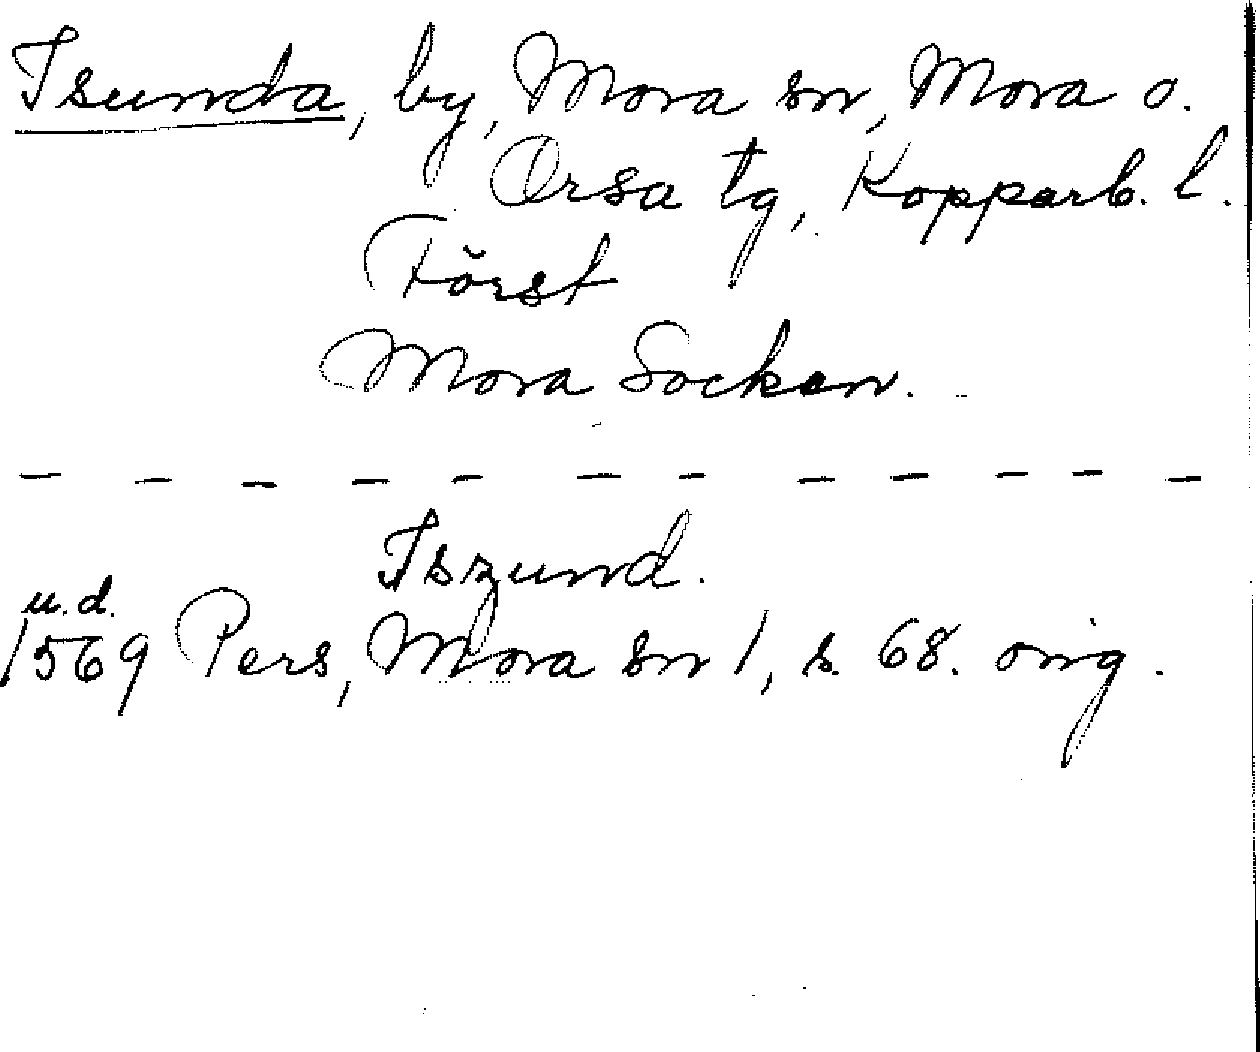 Isunda, by, Mora sn, Mora o.
Orsa tg, Kopparb. l.
Först
Mora Socken.
— — — — — — — — — — — —
Iszund.
u.d.
1569 Pers, Mora sn 1, s. 68. orig.